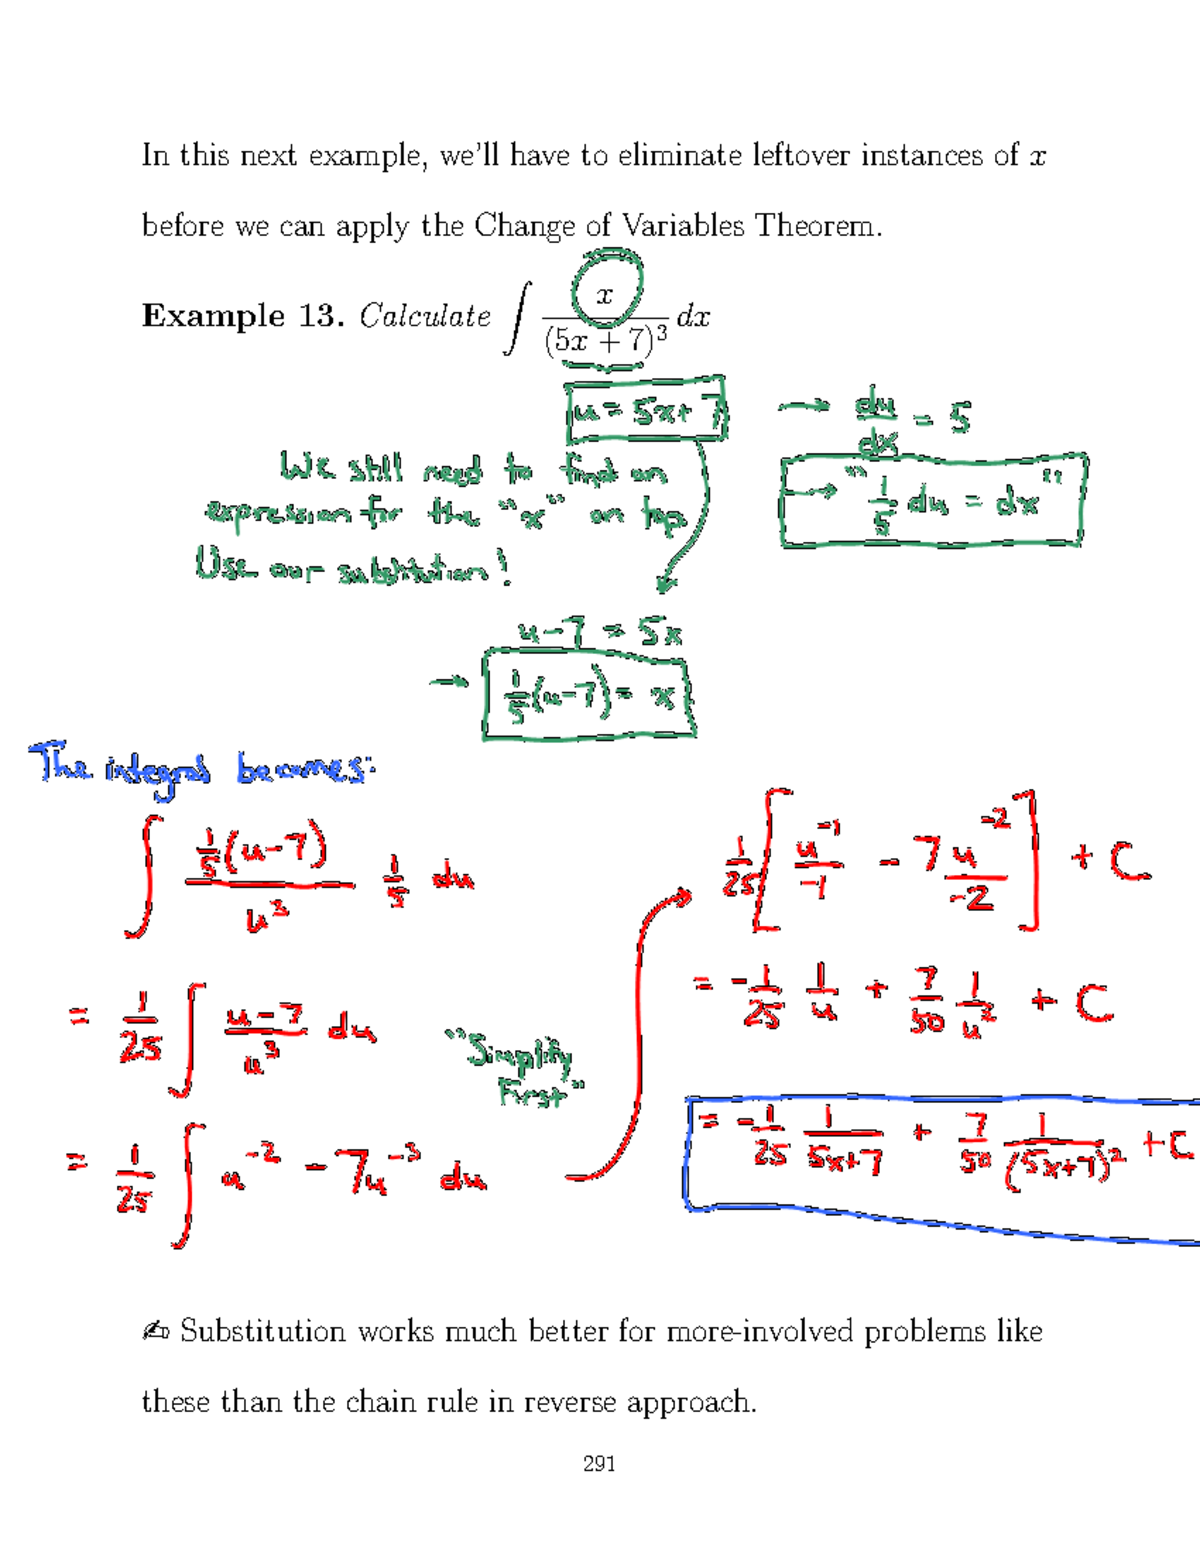 In this next example, we'll have to eliminate leftover instances of x
before we can apply the Change of Variables Theorem.
Example 13. Calculate ∫ x/(5x + 7)³ dx
u = 5x+7 → du/dx = 5
→ "1/5 du = dx"
We still need to find an
expression for the "x" on top
Use our substitution!
u-7 = 5x
→ 1/5(u-7) = x
The integral becomes:
∫ 1/5(u-7)/u³ 1/5 du
= 1/25 ∫ (u-7)/u³ du
"Simplify
First"
= 1/25 ∫ u⁻² - 7u⁻³ du
1/25 [ u⁻¹/-1 - 7u⁻²/-2 ] + C
= -1/25 1/u + 7/50 1/u² + C
= -1/25 1/(5x+7) + 7/50 1/(5x+7)² + C
✍ Substitution works much better for more-involved problems like
these than the chain rule in reverse approach.
291